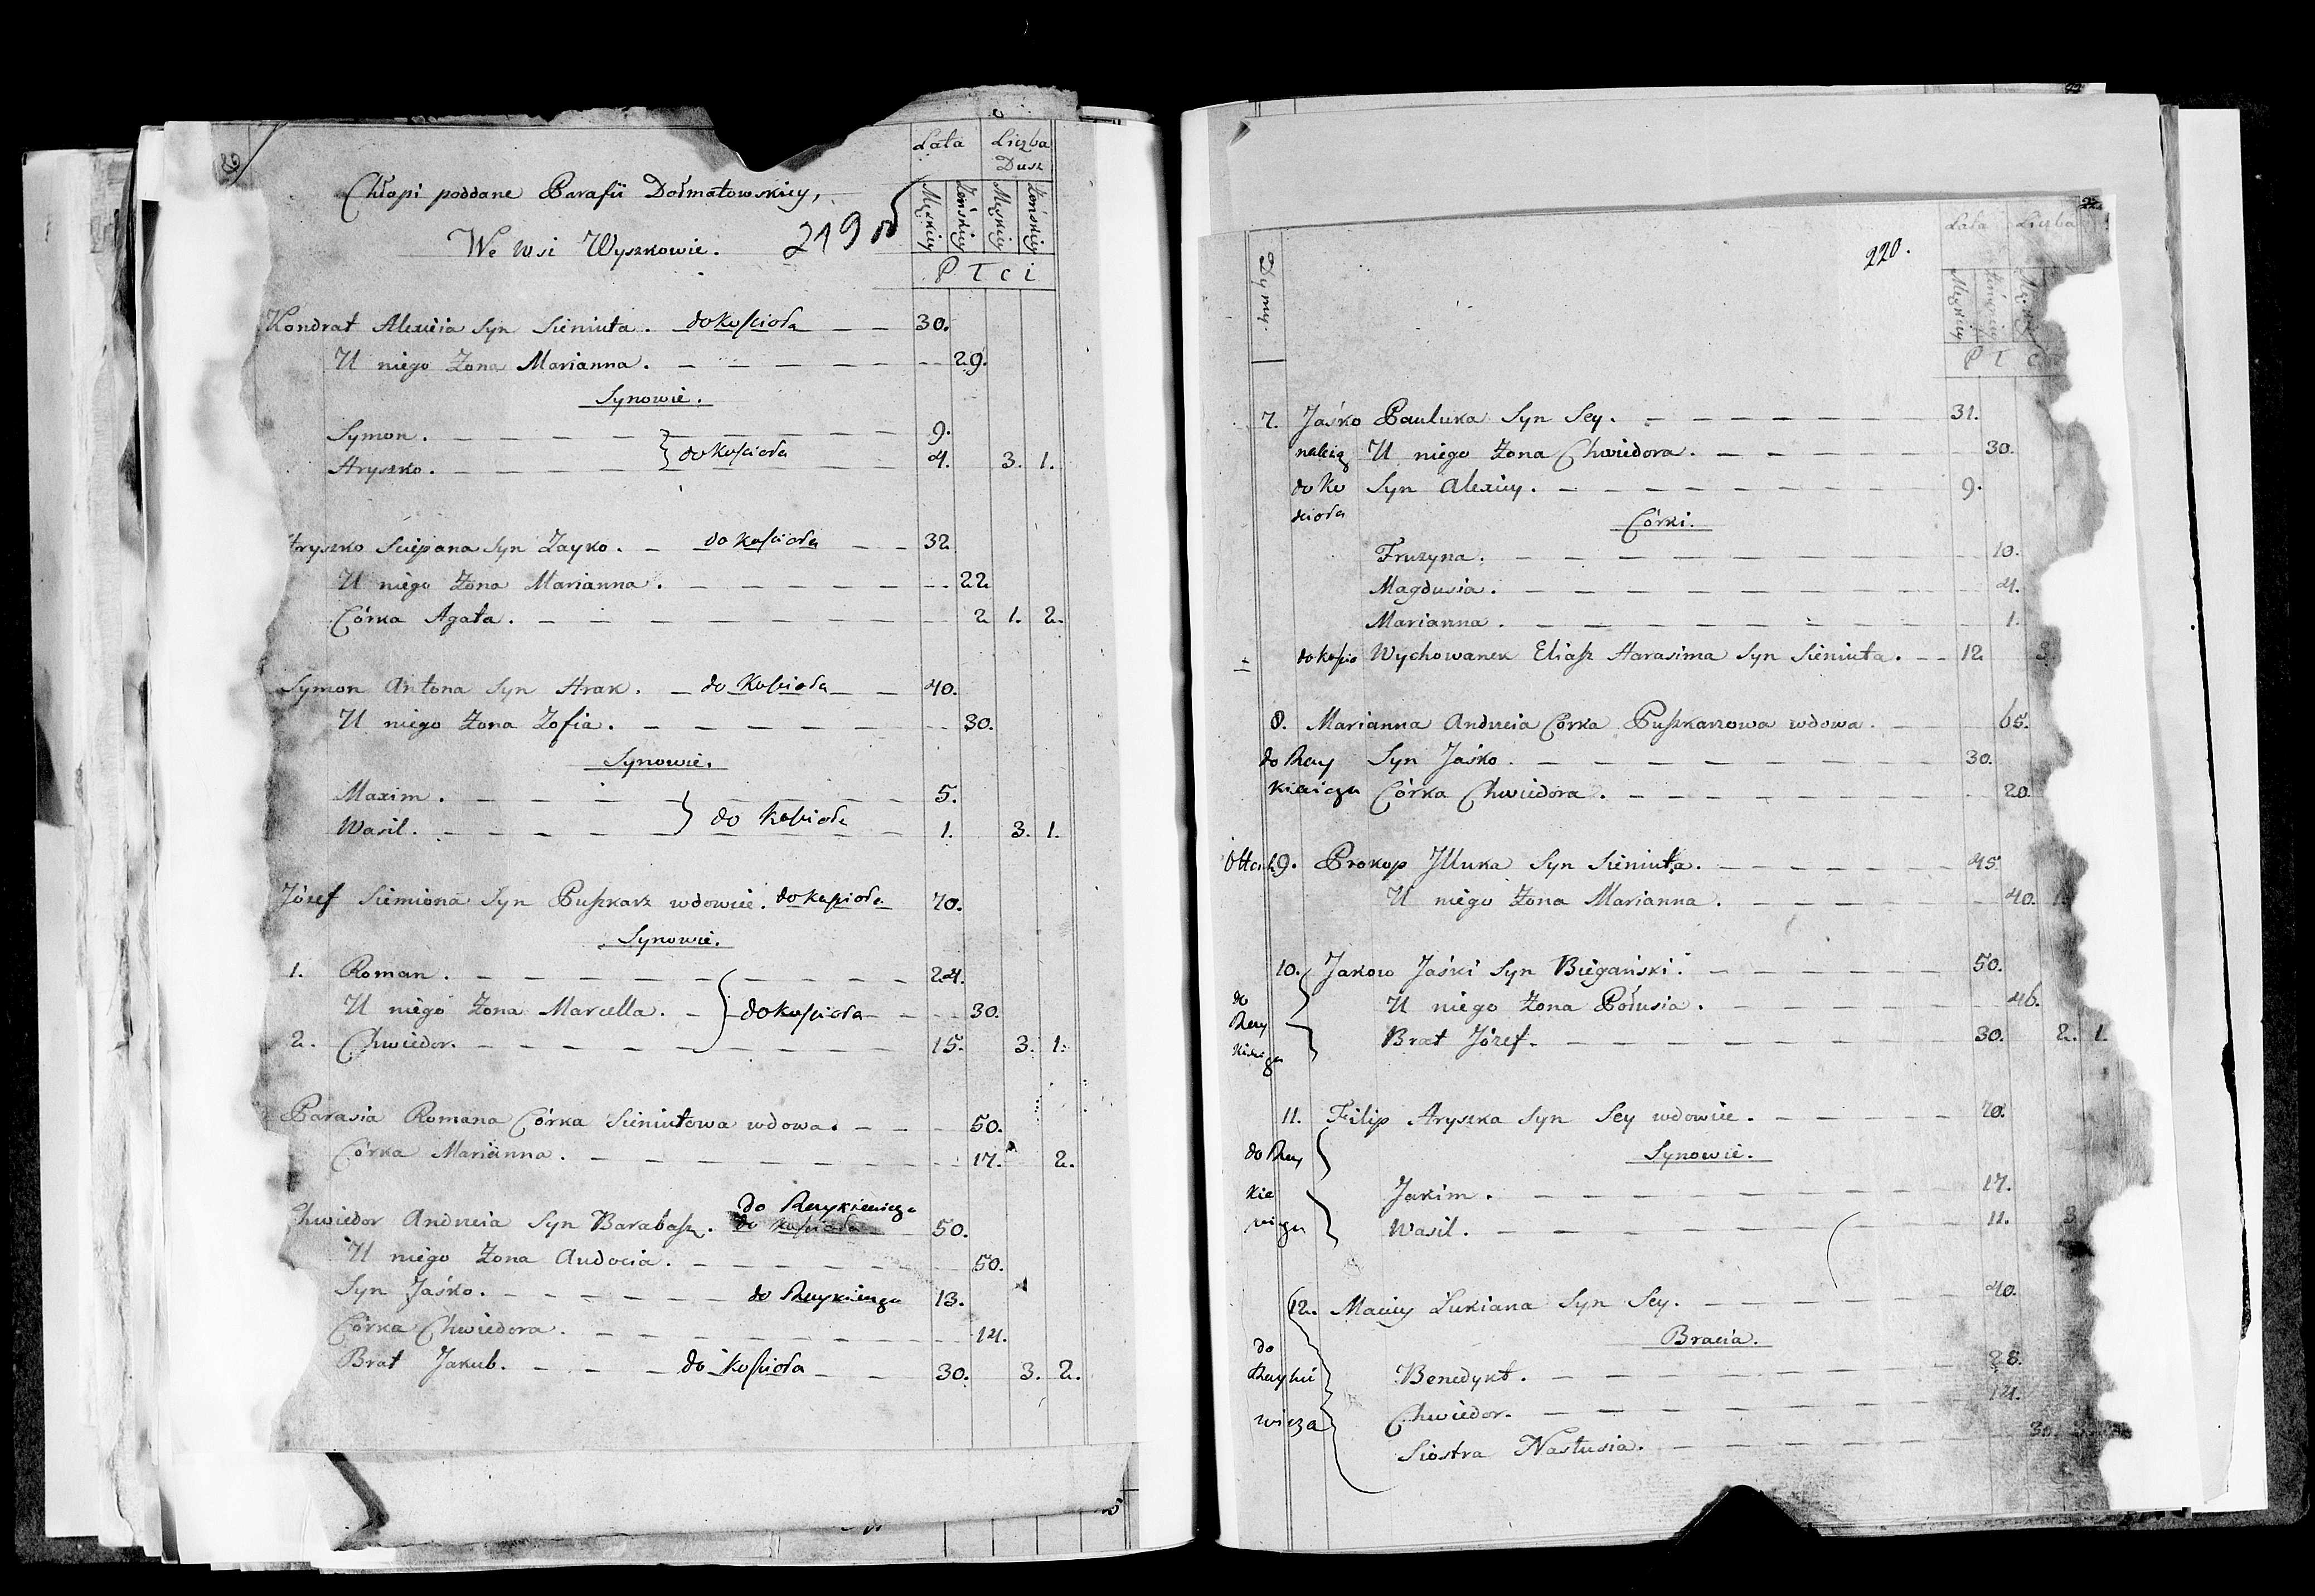 Lata Liczba Dusz
Męzkiey Żeńskiey Męzkiey Żeńskiey
Płci
Chłopi poddane Parafii Dołmatowskiey,
We wsi Wyszkowie. 219
Kondrat Alexieia Syn Sieniuta. do Kościoła 30.
U niego Żona Marianna. 29.
Synowie.
Symon. 9.
Hryszko. } do Kościoła 4. 3. 1.
Hryszko Sciepana Syn Zayko. do Kościoła 32
U niego Żona Marianna. 22
Córka Agata. 2 1. 2.
Symon Antona Syn Hrak. do Kościoła 40.
U niego Żona Zofia. 30.
Synowie.
Maxim. 5.
Wasil. } do Kościoła 1. 3. 1.
Józef Siemiona Syn Puszkarz wdowiec. do Kościoła 70.
Synowie.
1. Roman. 24.
U niego Żona Marcella. } do Kościoła 30.
2. Chwiedor. 15. 3. 1.
Parasia Romana Córka Sieniutowa wdowa. 50.
Córka Marianna. 17. 2.
do
Chwiedor Andrzeia Syn Barabasz. do Kościoła 50.
U niego Żona Audocia. 50.
Syn Jaśko. do 13.
Córka Chwiedora. 14.
Brat Jakub. do Kościoła 30. 3. 2.
220.
Dymy.
Lata Liczba
Męzkiey Żeńskiey Męzkiey
Płc
7. Jaśko Pauluka Syn Sey. 31.
należą U niego Żona Chwiedora. 30.
do Ko Syn Alexiey. 9.
ścioła Córki.
Fruzyna. 10.
Magdusia. 4.
Marianna. 1.
do Kościo Wychowanek Eliasz Harasima Syn Sieniuta. 12 3
8. Marianna Andrzeia Córka Puszkarzowa wdowa. 65.
do Syn Jaśko. 30.
Córka Chwiedora. 20.
9. Prokop Illuka Syn Sieniuta. 45
U niego Żona Marianna. 40. 1
10. Jakow Jaśki Syn Biegański. 50.
do U niego Żona Połusia. 46.
Brat Józef. 30. 2. 1.
11. Filip Hryszka Syn Sey wdowiec. 70.
do Synowie.
Jakim. 17.
Wasil. 11. 3
12. Maciey Łukiana Syn Sey. 40.
Bracia.
do
Benedykt. 28.
Chwiedor. 14.
Siostra Nastusia. 30.